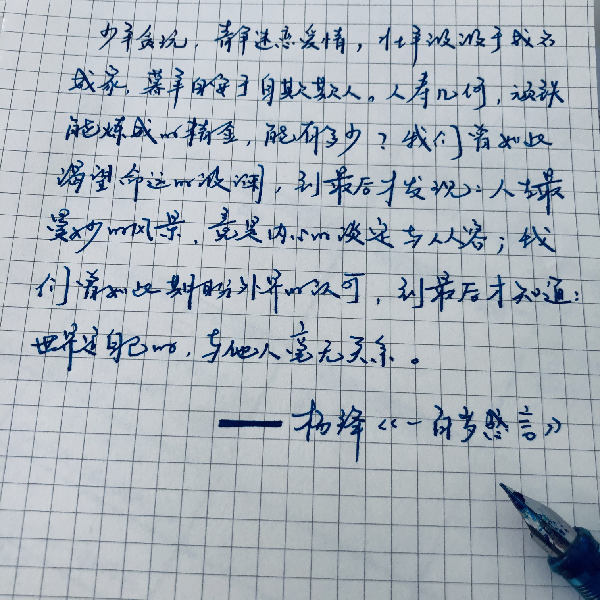 少年贪玩，青年迷恋爱情，壮年汲汲于成名
成家，暮年自安于自欺欺人。人寿几何，顽铁
能炼成的精金，能有多少？我们曾如此
渴望命运的波澜，到最后才发现：人生最
曼妙的风景，竟是内心的淡定与从容；我
们曾如此期盼外界的认可，到最后才知道：
世界是自己的，与他人毫无关系。
——杨绛《一百岁感言》